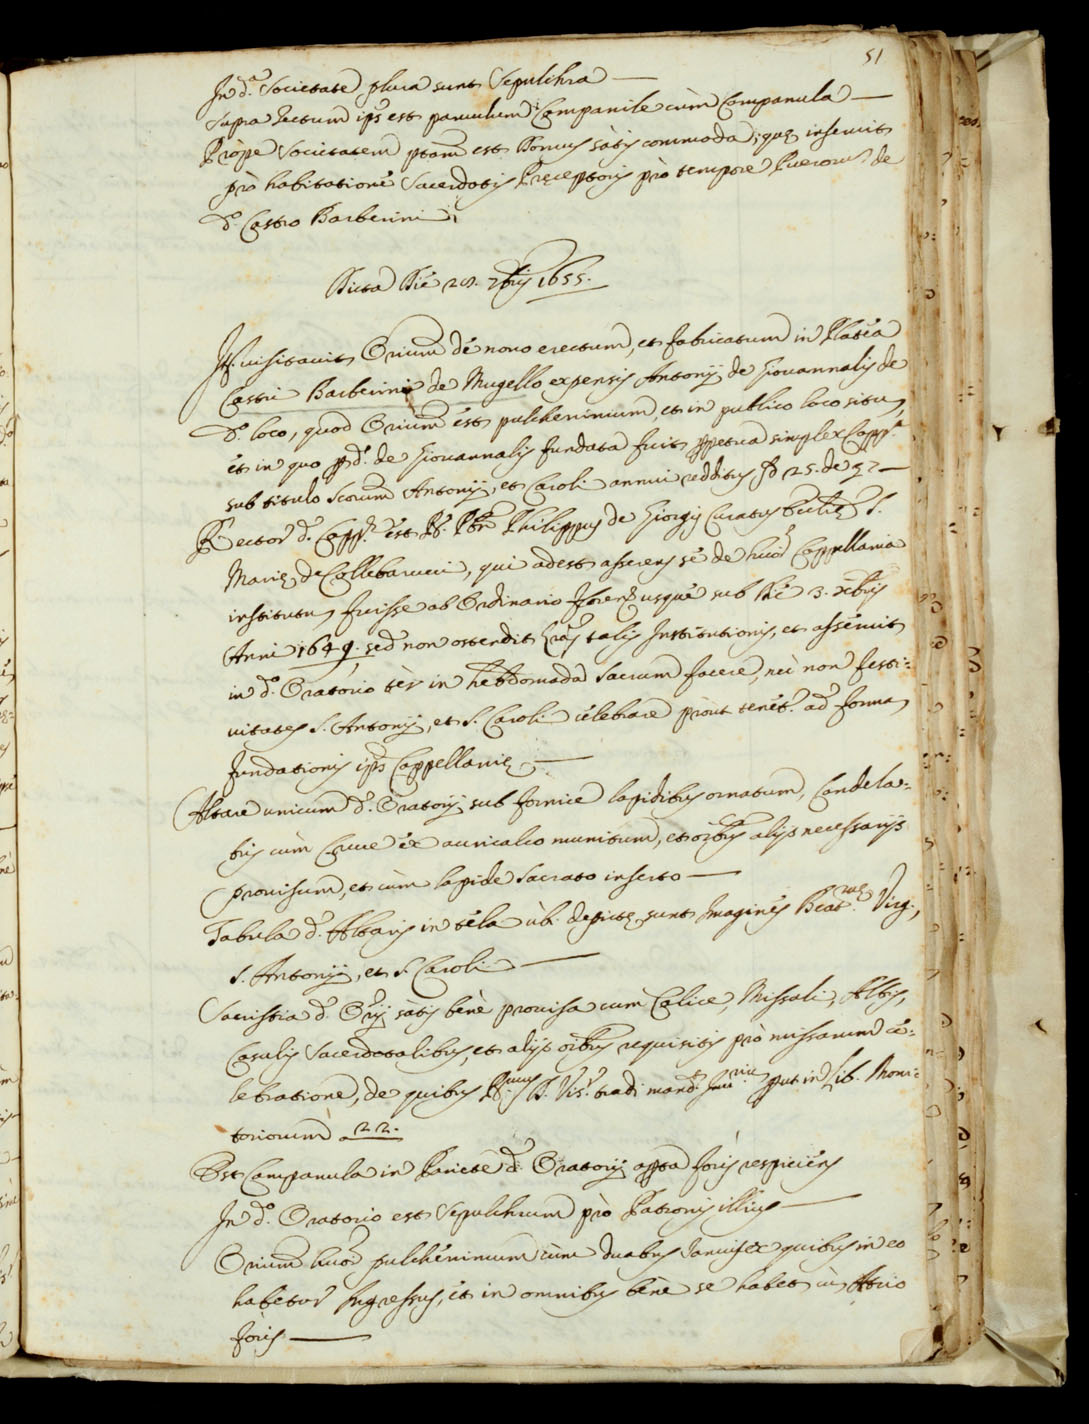 51
In d.ª Societate plura sunt Sepulchra —
Supra Tectum ips.ˢ est parvulum Campanile cum Campanula —
Prope Societatem ptam est Domus satis commoda, quę inservit
pro habitatione Sacerdotis Pręceptoris pro tempore Puerorum de
d.º Castro Barberini
Dicta Die 28. 7bris 1655.
It. visitavit Orium de novo erectum, et fabricatum in Platea
Castri Barberini de Mugello expensis Antonij de Giovannalis de
d.º loco, quod Orium est pulcherrimum, et in publico loco situm,
et in quo p d.º de Giovannalis fundata fuit ppetua simplex Capp.ª
sub titulo Scorum Antonij, et Caroli annui redditus 25. de
Rector d.ę Capp.ę est R. Pbr Philippus de Giorgis Curatus Eccl.ę S.
Marię de Collebarucci, qui adest asserens se de hmoi Cappellania
institutum fuisse ab Ordinario Floren. usque sub die 3. Xbris
Anni 1649. sed non ostendit Lras talis Institutionis, et asseruit
in d.º Oratorio ter in hebdomada Sacrum facere, nec non festi=
vitates S. Antonij, et S. Caroli celebrare prout tenet.r ad formam
fundationis ips.ˢ Cappellanię —
Altare unicum d.i Oratorij sub fornice lapidibus ornatum, Candela=
bris cum Cruce ex auricalco munitum, et oibus alijs necessarijs
provisum, et cum lapide Sacrato inserto —
Tabula d.i Altaris in tela ubi depictę sunt Imagines Beat.mę Virg.,
S. Antonij, et S. Caroli —
Sacristia d.i Orij satis bene provisa cum Calice, Missali, Albis,
Casulis Sacerdotalibus, et alijs oibus requisitis pro missarum ce=
lebratione, de quibus R.mus D. Vis.r tradi mand.t Inv.rium put in Lib. Moni=
toriorum 22.
Est Campanula in Pariete d.i Oratorij appa foris respiciens
In d.º Oratorio est Sepulchrum pro Patronis illius —
Orium hmoi pulcherrimum cum duabus Januis ex quibus in eo
habetur Ingressus, et in omnibus bene se habet cum Atrio
foris —